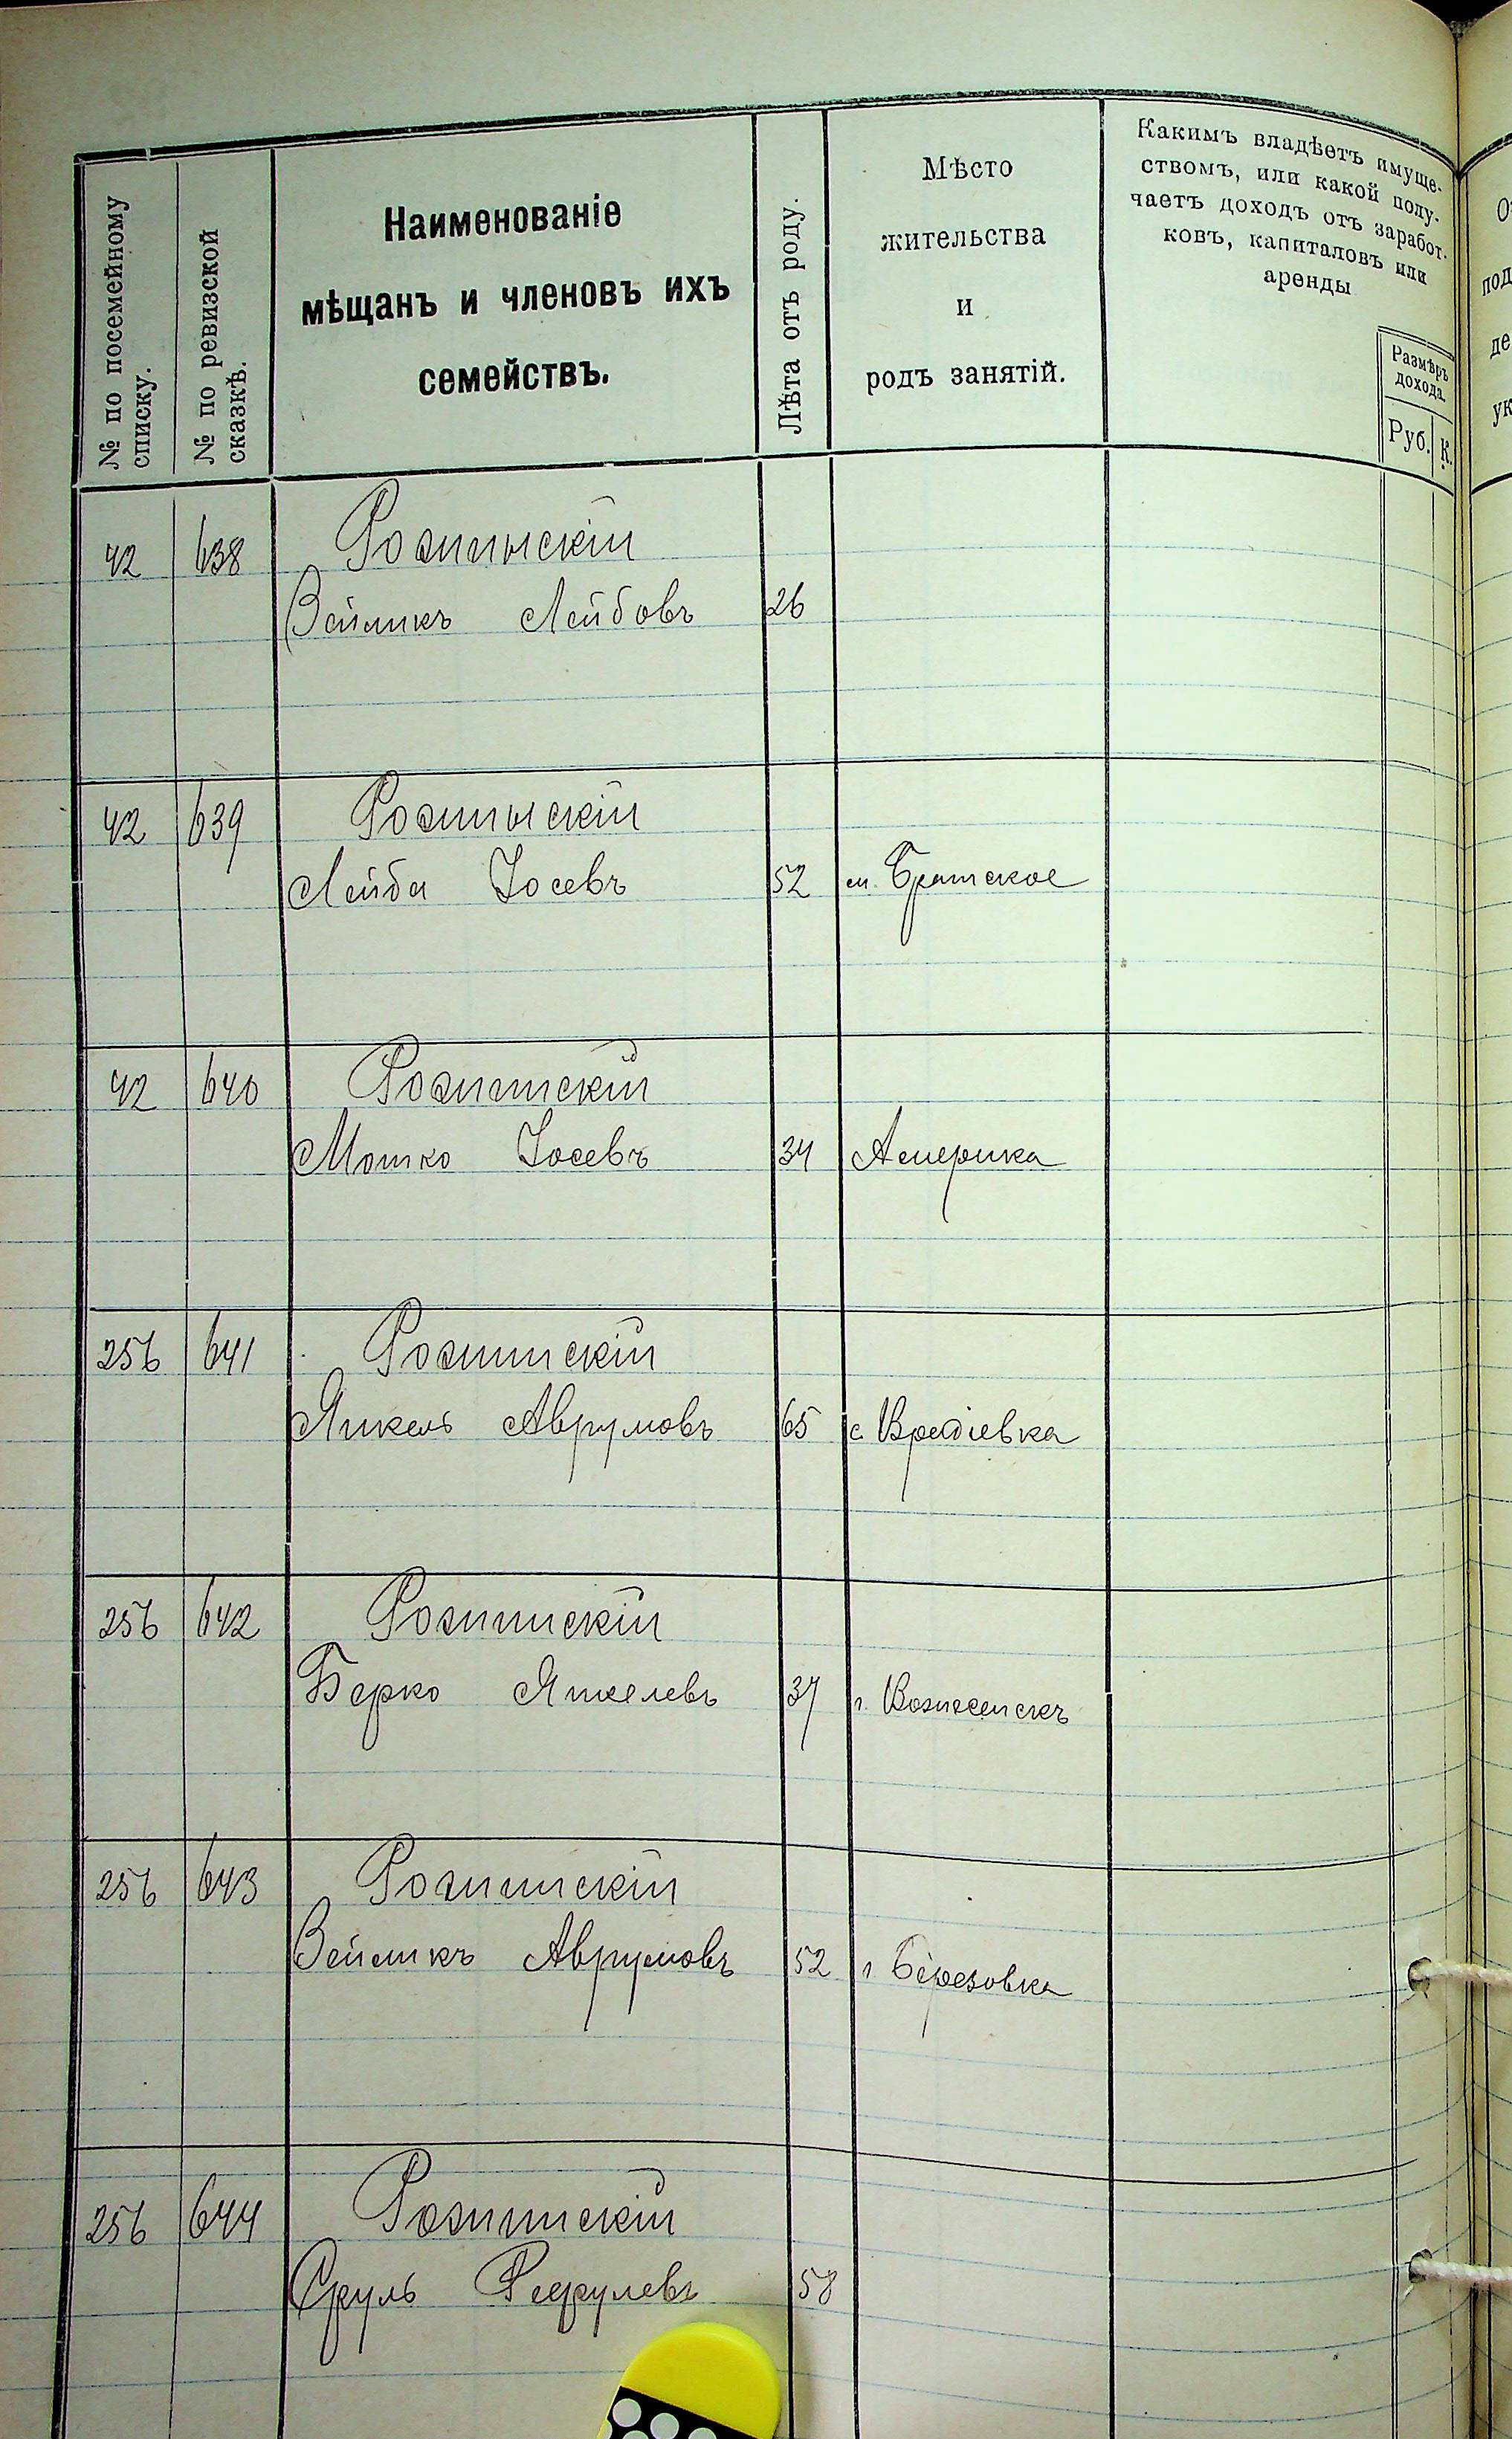 № по посемейному
списку.
№ по ревизской
сказкѣ.
Наименованіе
мѣщанъ и членовъ ихъ
семействъ.
Лѣта отъ роду.
Мѣсто
жительства
и
родъ занятій.
Какимъ владѣетъ имуще-
ствомъ, или какой полу-
чаетъ доходъ отъ заработ-
ковъ, капиталовъ или
аренды
Размѣръ
дохода.
Руб. К.
42 638
Лейбовъ 26
42 639
Лейба Іосевъ 52 м. Братское
42 640
Мошко Іосевъ 34 Америка
256 641
Янкель Аврумовъ 65 с. Врадіевка
256 642
Берко Янкелевъ 37 г. Вознесенскъ
256 643
Аврумовъ 52 Березовка
256 644
Сруль 58